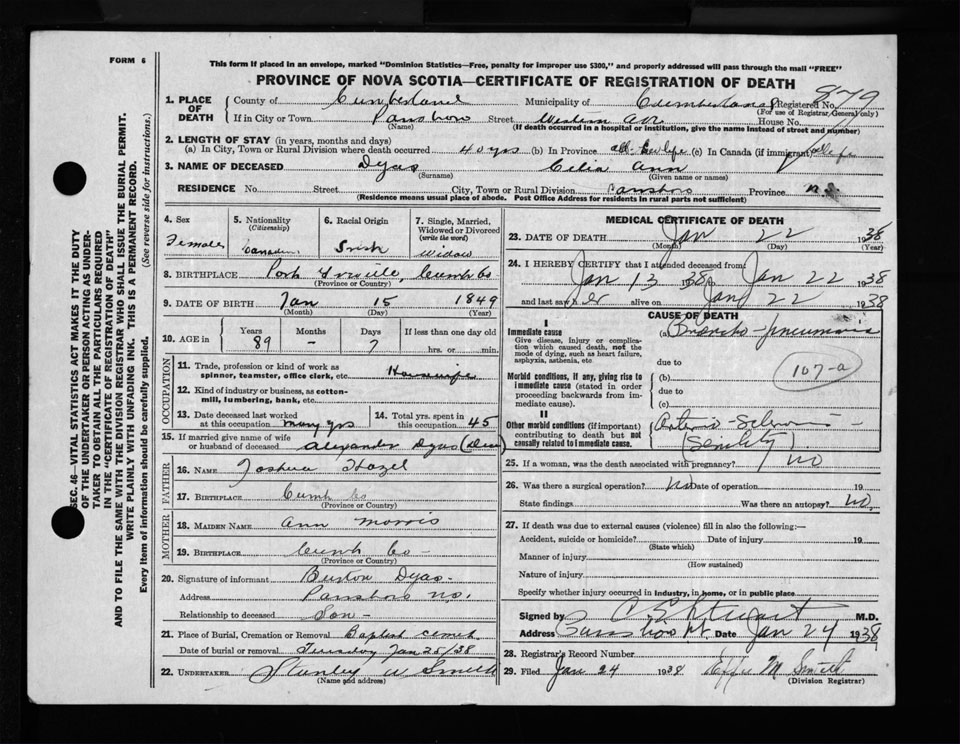 FORM 6
This form if placed in an envelope, marked "Dominion Statistics—Free, penalty for improper use $300," and properly addressed will pass through the mail "FREE"
PROVINCE OF NOVA SCOTIA—CERTIFICATE OF REGISTRATION OF DEATH
SEC. 46—VITAL STATISTICS ACT MAKES IT THE DUTY
OF THE UNDERTAKER OR PERSON ACTING AS UNDER-
TAKER TO OBTAIN ALL THE PARTICULARS REQUIRED
IN THE "CERTIFICATE OF REGISTRATION OF DEATH"
AND TO FILE THE SAME WITH THE DIVISION REGISTRAR WHO SHALL ISSUE THE BURIAL PERMIT.
WRITE PLAINLY WITH UNFADING INK. THIS IS A PERMANENT RECORD.
Every item of information should be carefully supplied. (See reverse side for instructions.)
1. PLACE OF DEATH
County of Cumberland Municipality of Cumberland Registered No. 879
(For use of Registrar General only)
If in City or Town Parrsboro Street Western Ave House No.
(Name) (If death occurred in a hospital or institution, give the name instead of street and number)
2. LENGTH OF STAY (in years, months and days)
(a) In City, Town or Rural Division where death occurred 40 yrs (b) In Province all her life (c) In Canada (if immigrant) all life
3. NAME OF DECEASED Dyas Celia Ann
(Surname) (Given name or names)
RESIDENCE No. Street City, Town or Rural Division Parrsboro Province N.S.
(Residence means usual place of abode. Post Office Address for residents in rural parts not sufficient)
4. Sex
Female
5. Nationality (Citizenship)
Canadian
6. Racial Origin
Irish
7. Single, Married, Widowed or Divorced (write the word)
Widow
8. BIRTHPLACE Port Greville, Cumb Co
(Province or Country)
9. DATE OF BIRTH Jan 15 1849
(Month) (Day) (Year)
10. AGE in Years Months Days If less than one day old
89 – 7 hrs. or min.
OCCUPATION
11. Trade, profession or kind of work as spinner, teamster, office clerk, etc. Housewife
12. Kind of industry or business, as cotton-mill, lumbering, bank, etc.
13. Date deceased last worked at this occupation many yrs
14. Total yrs. spent in this occupation 45
15. If married give name of wife or husband of deceased Alexander Dyas (Dead)
FATHER
16. NAME Joshua Hazel
17. BIRTHPLACE Cumb Co
(Province or Country)
MOTHER
18. MAIDEN NAME Ann Morris
19. BIRTHPLACE Cumb Co –
(Province or Country)
20. Signature of informant Burton Dyas –
Address Parrsboro N.S.
Relationship to deceased Son –
21. Place of Burial, Cremation or Removal Baptist
Date of burial or removal Tuesday Jan 25/38
22. UNDERTAKER Stanley A Smith
(Name and address)
MEDICAL CERTIFICATE OF DEATH
23. DATE OF DEATH Jan 22 1938
(Month) (Day) (Year)
24. I HEREBY CERTIFY that I attended deceased from:
Jan 13 1938 to Jan 22 1938
and last saw her alive on Jan 22 1938
CAUSE OF DEATH
I
Immediate cause (a) Broncho-pneumonia
Give disease, injury or complication which caused death, not the mode of dying, such as heart failure, asphyxia, asthenia, etc.
due to
107-a
Morbid conditions, if any, giving rise to immediate cause (stated in order proceeding backwards from immediate cause).
(b)
due to
(c)
II
Other morbid conditions (if important) contributing to death but not causally related to immediate cause.
Arterio-Sclerosis –
(Senility)
25. If a woman, was the death associated with pregnancy? NO
26. Was there a surgical operation? NO Date of operation 19
State findings Was there an autopsy? NO.
27. If death was due to external causes (violence) fill in also the following:—
Accident, suicide or homicide? Date of injury 19
(State which)
Manner of injury
(How sustained)
Nature of injury
Specify whether injury occurred in industry, in home, or in public place
Signed by C E Stewart M.D.
Address Parrsboro Date Jan 24 1938
28. Registrar's Record Number
29. Filed Jan 24 1938 Effie M Smith
(Division Registrar)